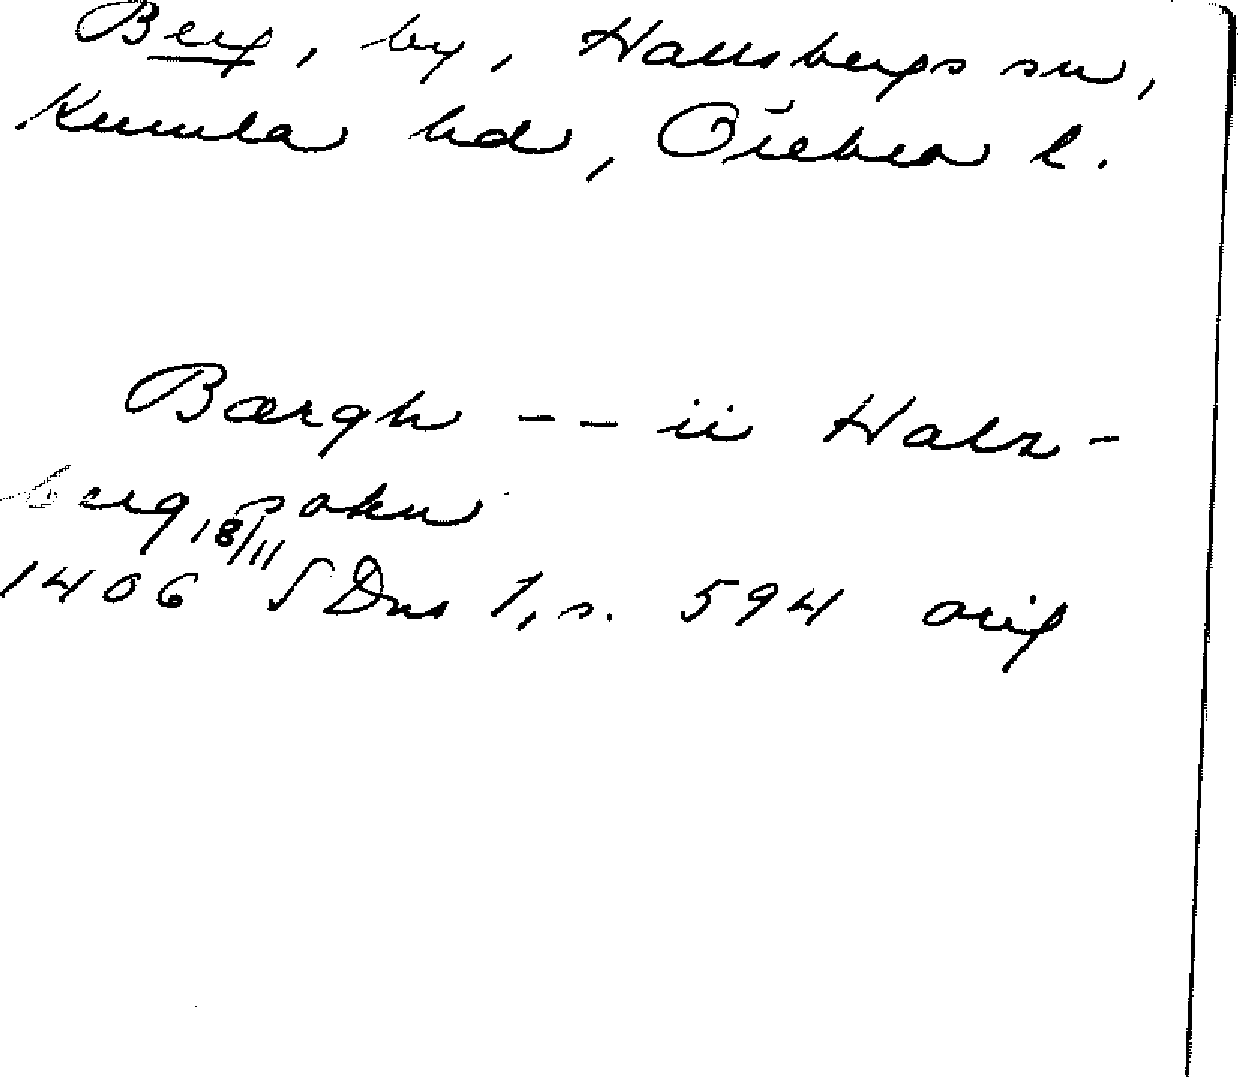 Berg, by, Hallsbergs sn,
Kumla hd, Örebro l.
Bærgh -- ii Halz-
berg sokn
1406 18/11 SDns 1, s. 594 orig